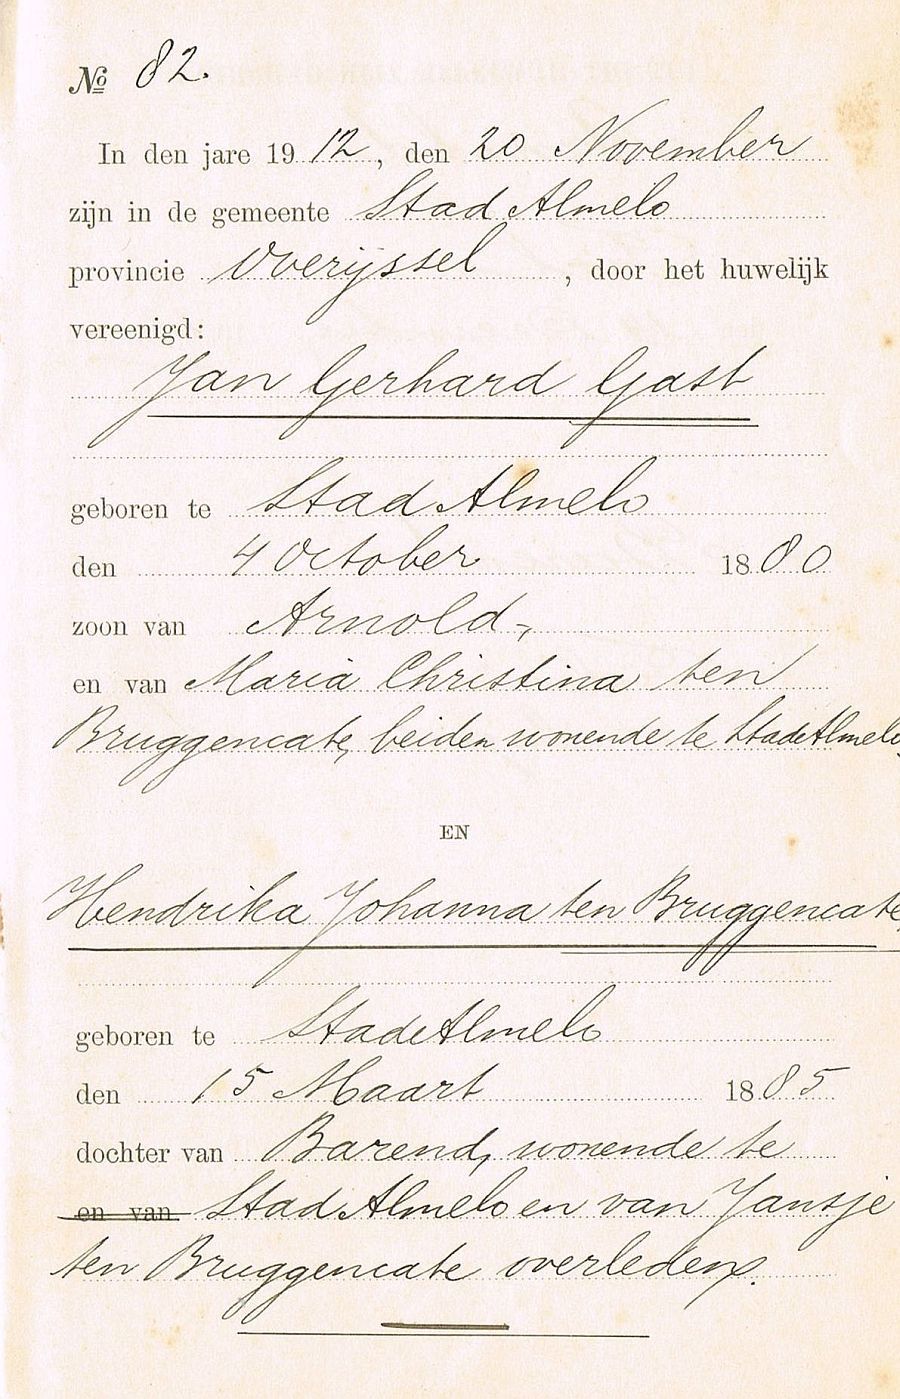 № 82.
In den jare 1912, den 20 November
zijn in de gemeente Stad Almelo
provincie Overijssel, door het huwelijk
vereenigd:
Jan Gerhard Gast
geboren te Stad Almelo
den 4 October 1880
zoon van Arnold,
en van Maria Christina ten
Bruggencate, beiden wonende te Stad Almelo,
EN
Hendrika Johanna ten Bruggencate,
geboren te Stad Almelo
den 15 Maart 1885
dochter van Barend, wonende te
en van Stad Almelo en van Jansje
ten Bruggencate overleden.